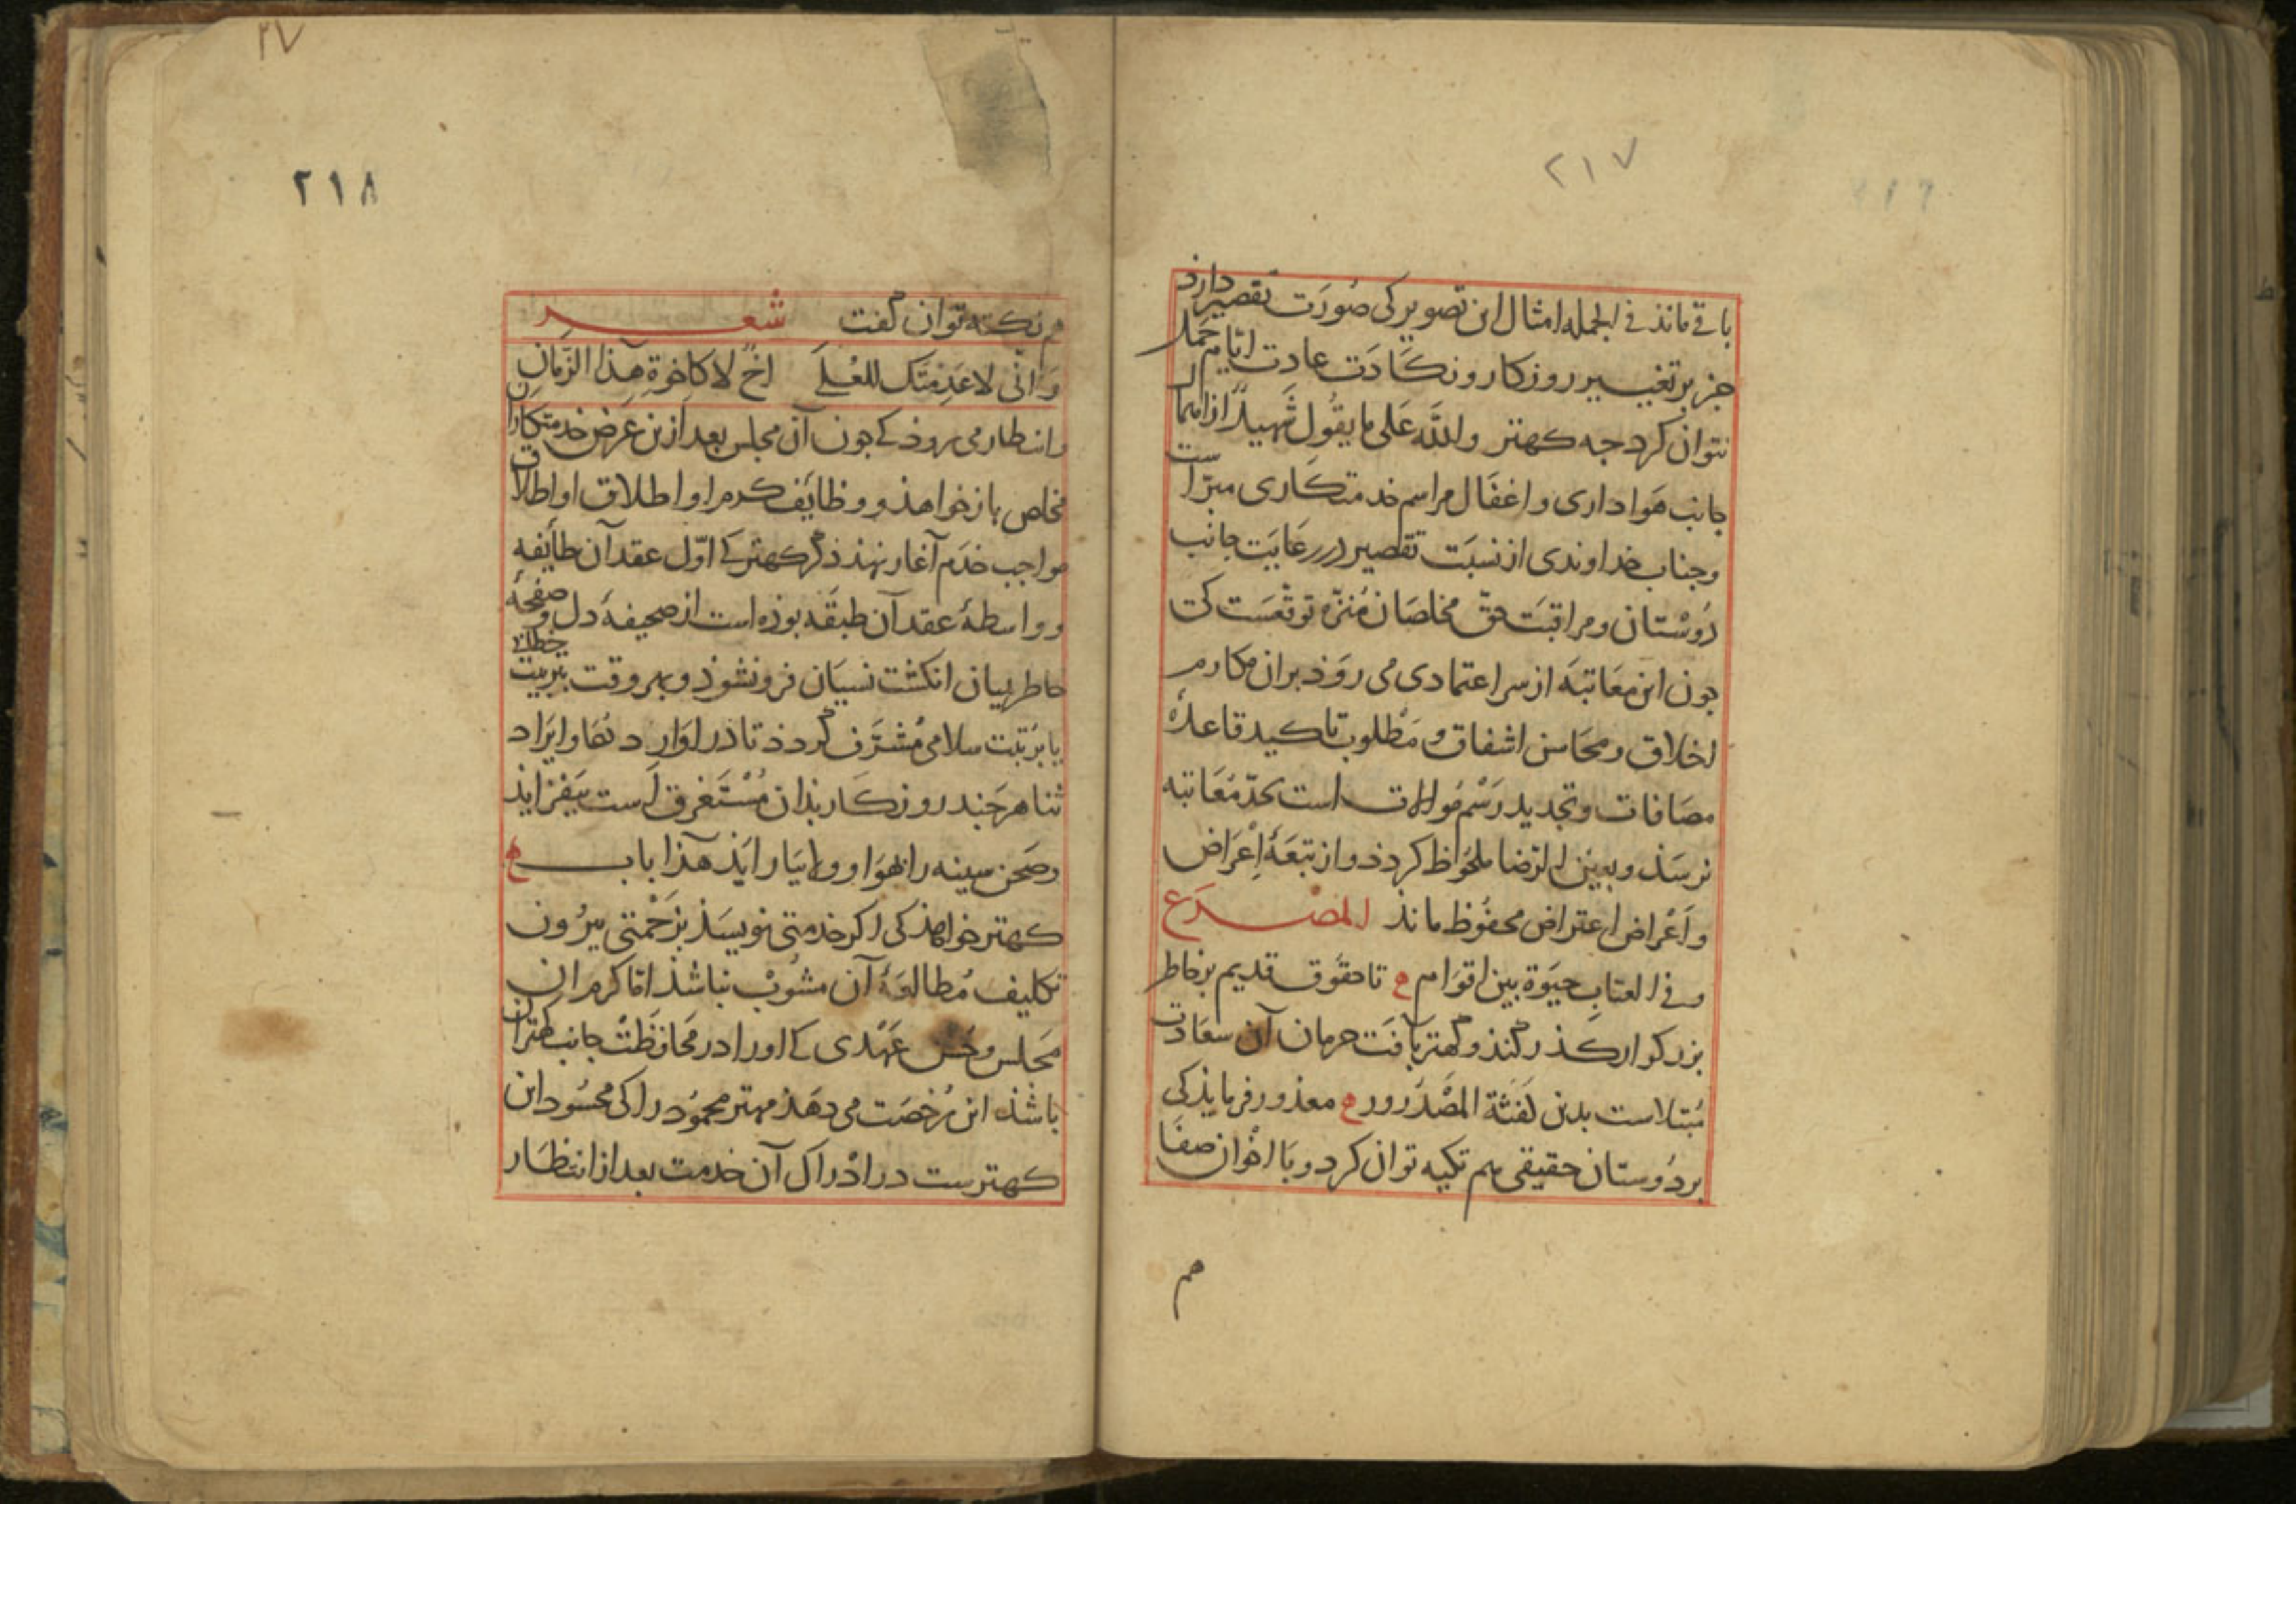 ۲۱۷
باقی ماند فی الجمله امثال این تصویر کی صُورَت تقصیر دارد
جز بر تغییر روزکار و نکَادَت عادت ایّام حمل
نتوان کرد جه کهتر واللّه عَلی ما یقُول شَهیدٌ از اهمال
جانب هَواداری و اغفَال مراسم خدمتکَاری مبرّاست
و جناب خداوندی از نسبَت تقصیر در رعَایَت جانب
دُوسْتان و مراقبَت حقّ مخلصَان مُنَزّه توقعَست کی
جون این معَاتبَه از سر اعتمادی می روَد بر ان مکارم
اخلاق و محَاسن اشفاق و مَطْلوب تاکید قاعدهٔ
مصَافات و تجدید رَسْم مُوالات است بحدّ مُعَاتبه
نرسَد و بعین الرّضا ملحُوظ کردد و از تبعَهٔ اِعْرَاض
و اَعْراض اعتراض محفُوظ ماند المصْرَع
و فی العتابِ حیَوة بین اقوَام م تا حقُوق قدیم بر خاطر
بزرکوار کذر کند و کهتر بآفَت حرمان آن سعَادت
مُبتلاست بدین نَفثَة المصْدُرور م معذور فرماید کی
بر دُوستان حقیقی هم تکیه توان کرد و بَا اخْوان صفَا
هم
۲۷
۲۱۸
هم نکته توان گفت شعر
وَ انّی لاعدمتک للعُلَی اخٌ لا کاخوةِ هذا الزّمانِ
و انتظار می رود کے جون آن مجلس بعد ازین عَرض خدمتکاران
مخلص باز خواهد و وظائف کرم را و اطلاق او اطلاق
مواجب خدَم آغاز نهد ذکر کهتر کے اوّل عقد آن طائفه
و واسطهٔ عقد آن طبقَه بوده است از صحیفهٔ دل و صفحهٔ
خاطر ببیان انکشت نسیَان فرو نشوذ و بهر وقت بتربیت خطابی
یا برُتبت سلامی مُشَرَّف گردد تا در اوَارد دعَا و ایرَاد
ثنا هر جَند روزکَار بذان مُسْتَغرق است بیَفزاید
و صَحن سینه را بهوَا و ولا بیَاراید هذا باب م
کهتر خواهذ کی اکر خدمتی نویسَد بزَحْمتی بیرُون
تکلیف مُطالعَهٔ آن مشُوبْ نباشذ امّا کرم ان
مجَلس و حُسْن عَهْدی کے او را در محَافظَتْ جانب کهتران
باشد این رُخصَت می دهَد مهتر محمُود را کی محسُود این
کهترست در ادْراک آن خدمت بعد از انتظَار